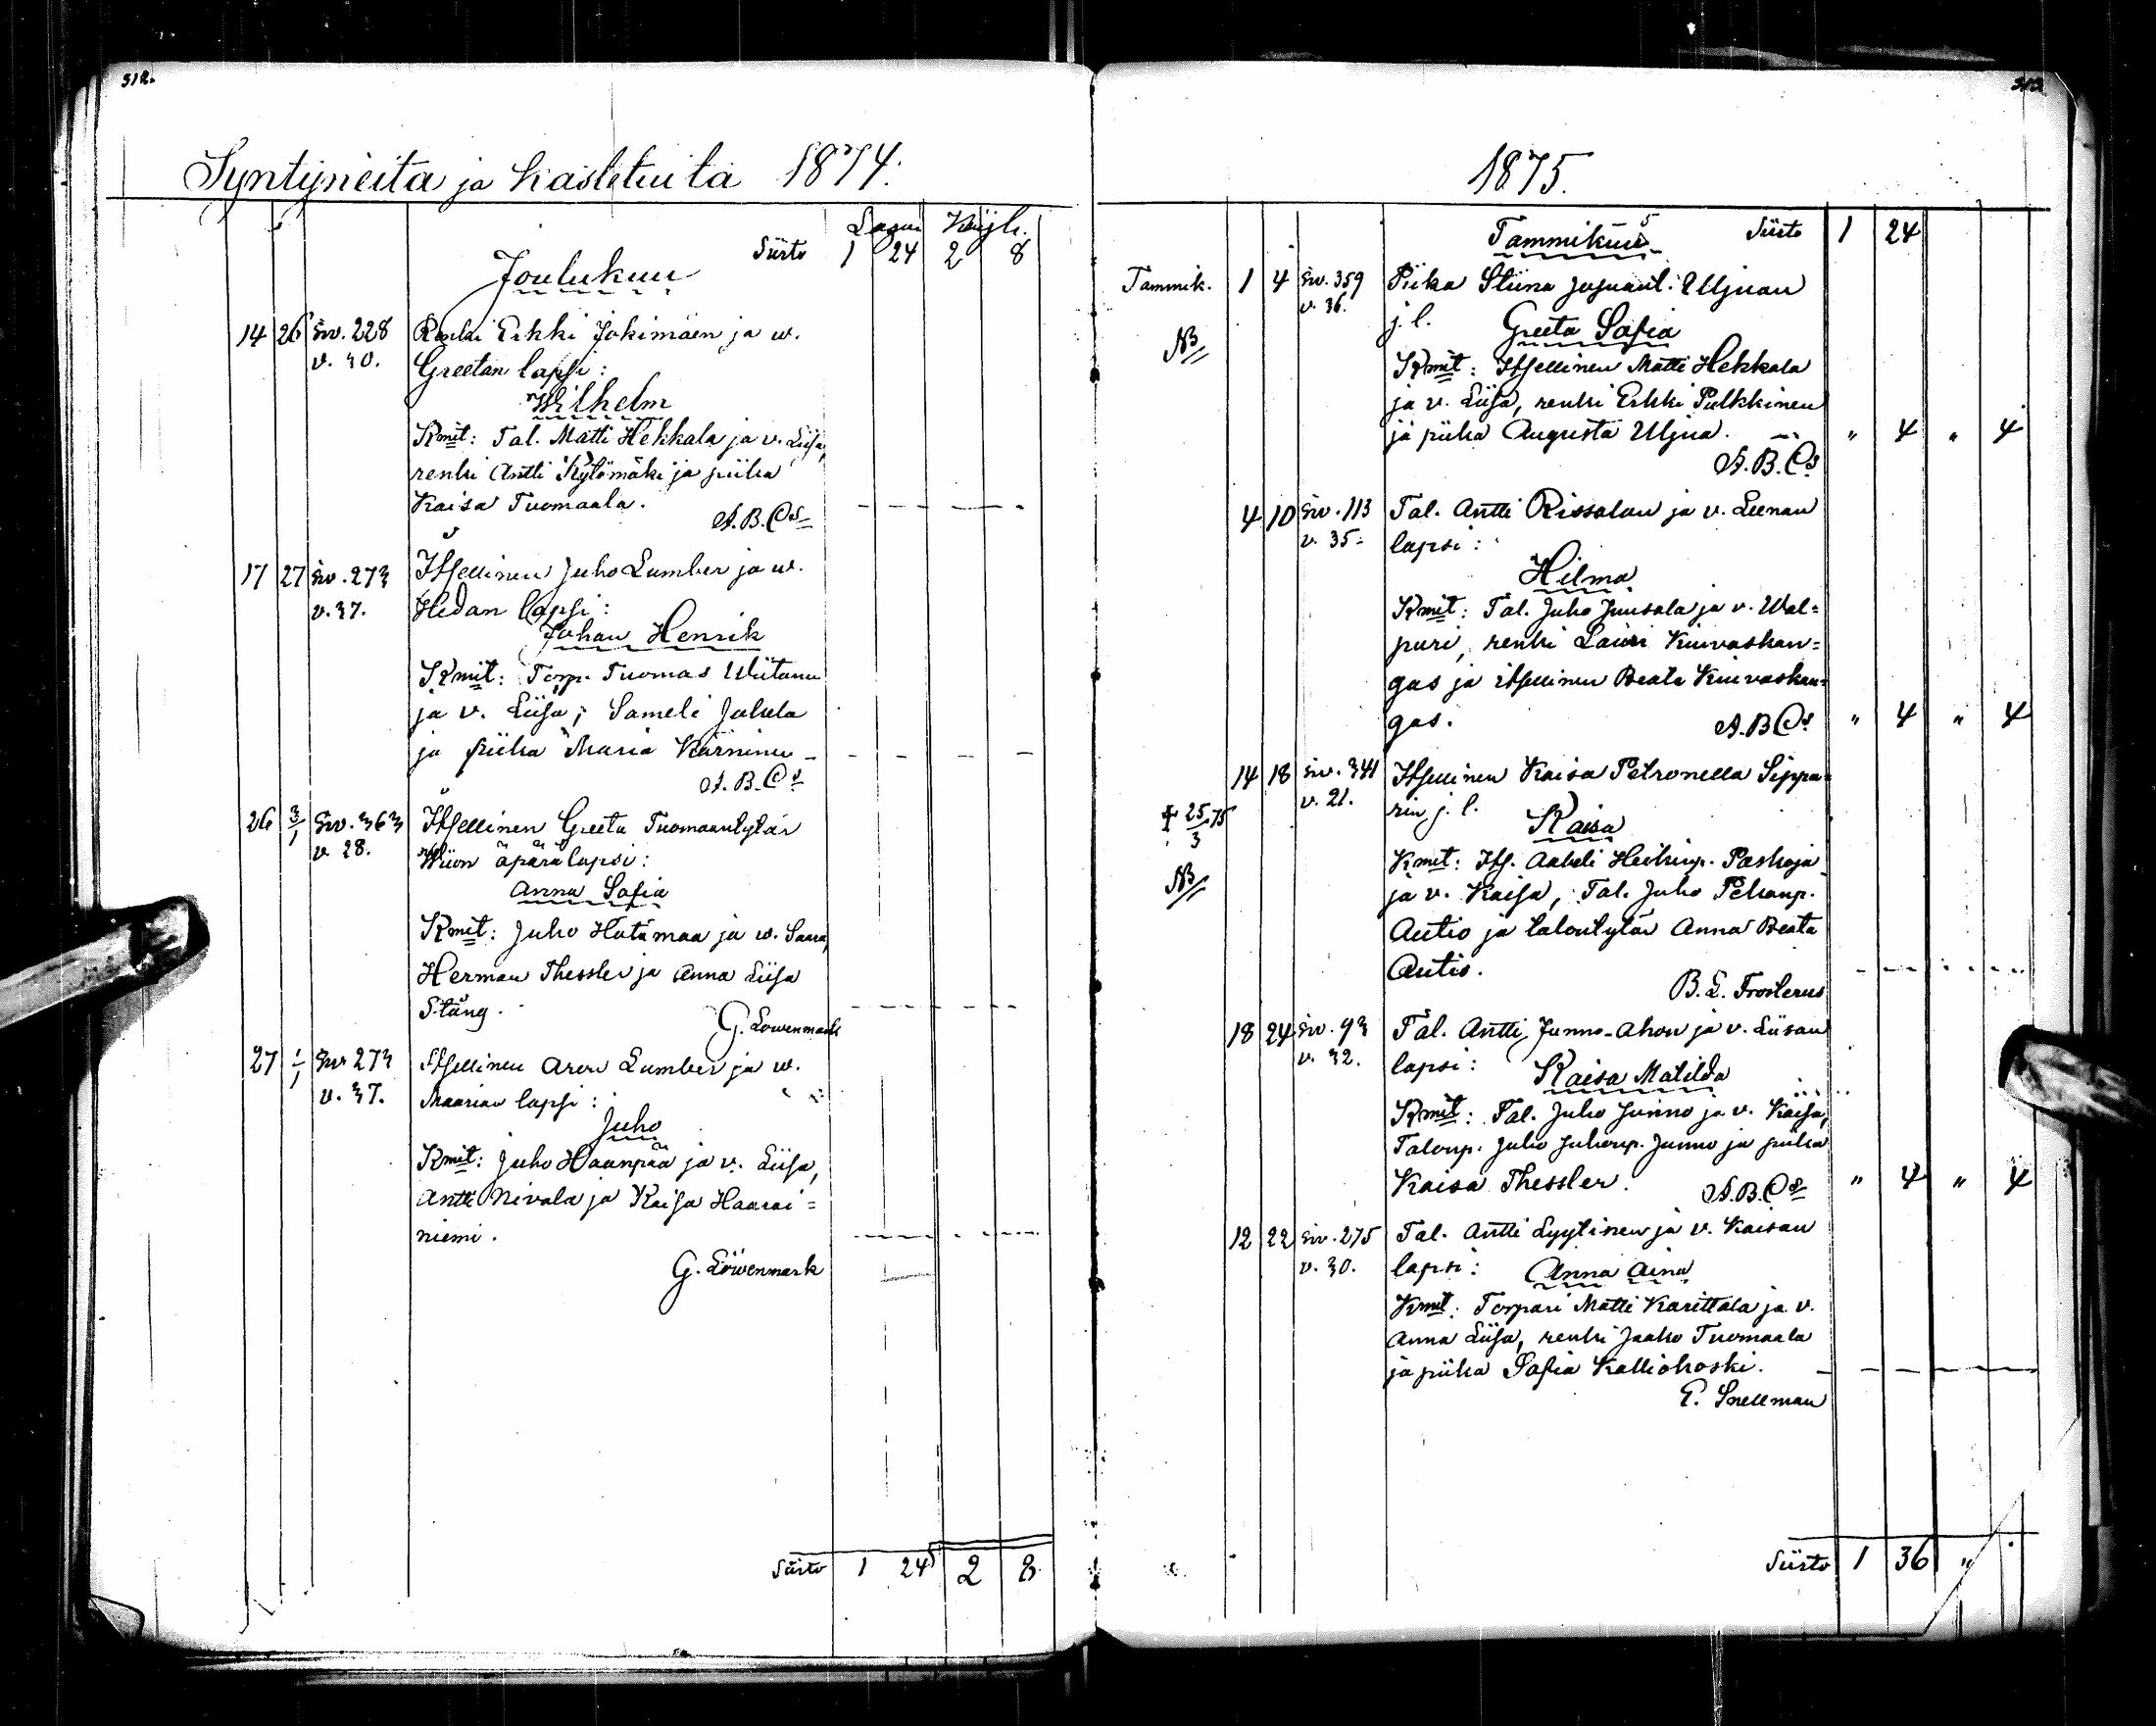 312.
Syntyneitä ja kastetuita 1874.
Lasar. Köyh.
Joulukuu Siirto 1 24 2 8
14 26 Siv. 228 Renki Erkki Jokimäen ja w.
v. 30. Greetan lapsi:
Wilhelm
Kmit: Tal. Matti Hekkala ja v. Liisa,
renki Antti Kytömäki ja piika
Kaisa Tuomaala.
A.B.Cs
17 27 Siv. 273 Itsellinen Juho Lumber ja w.
v. 37. Hedan lapsi:
Johan Henrik
Kmit: Torp. Tuomas Wiitanen
ja v. Liisa; Sameli Jukela
ja piika Maria Kärninen
A.B.Cs
26 3/1 Siv. 363 Itsellinen Greeta Tuomaantytär
v. 28. Wiion äpärälapsi:
Anna Sofia
Kmit: Juho Hatämaa ja w. Saara,
Herman Thessler ja Anna Liisa
Stång.
G. Löwenmark
27 1/1 Siv 273 Itsellinen Aron Lumber ja w.
v. 37. Maarian lapsi:
Juho
Kmit: Juho Haanpää ja v. Liisa,
Antti Nivala ja Kaisa Haarai=
niemi.
G. Löwenmark
Siirto 1 24 2 8
313
1875.
Tammikuu Siirto 1 24
Tammik. 1 4 Siv. 359 Piika Stiina Uljuan
v. 36. j. l. Greeta Sofia
NB
Kmit: Itsellinen Matti Hekkala
ja v. Liisa, renki Erkki Pulkkinen
ja piika Augusta Uljua. " 4 " 4
A.B.Cs
4 10 Siv. 113 Tal. Antti Rissalan ja v. Leenan
v. 35. lapsi:
Hilma
Kmit: Tal. Juho Juusala ja v. Wal=
puri, renki Lauri Kuivaskan=
gas ja itsellinen Beata Kuivaskan=
gas. A.B.Cs " 4 " 4
14 18 Siv. 341 Itsellinen Kaisa Petronella Sippa=
v. 21. rin j. l. Kaisa
‡ 25/3 75
NB
Kmit: Its. Aabeli Heikinp. Paskoja
ja v. Kaisa, Tal. Juho Pekanp.
Autio ja talontytär Anna Beata
Autio.
B. L. Frosterus
18 24 Siv. 93 Tal. Antti Junno-Ahon ja v. Liisan
v. 32. lapsi: Kaisa Matilda
Kmit: Tal. Juho Junno ja v. Kaisa,
Talonp. Juho Juhonp. Junno ja piika
Kaisa Thessler. A.B.Cs " 4 " 4
12 22 Siv. 275 Tal. Antti Lyytinen ja v. Kaisan
v. 30. lapsi: Anna Aina
Kmit: Torpari Matti Karittala ja v.
Anna Liisa, renki Jaako Tuomaala
ja piika Sofia Kalliokoski.
E. Snellman
Siirto 1 36 "